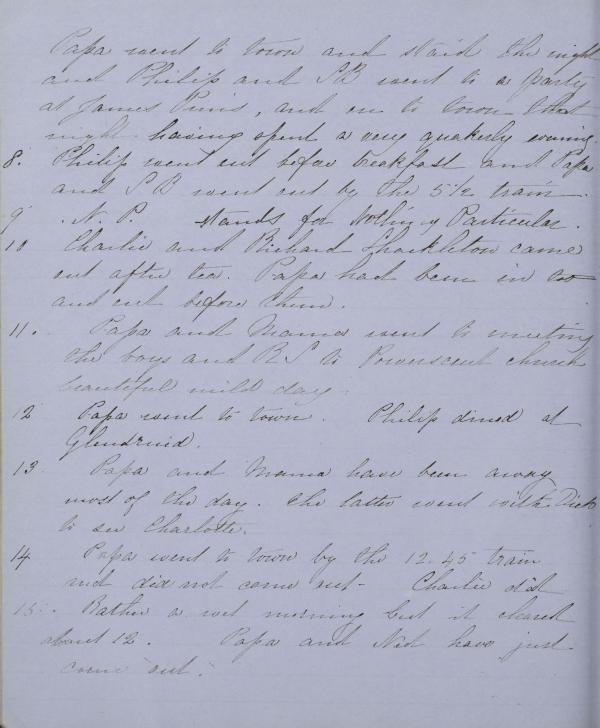 Papa went to town and staid the night
and Philip and SB went to a party
at James Pims, and on to town that
night having spent a very quakerly evening.
8. Philip went out before breakfast and Papa
and S B went out by the 5 1/2 train.
9. N. P. stands for Nothing Particular.
10 Charlie and Richard Shackleton came
out after tea. Papa had been in too
and out before them.
11. Papa and Mama went to meeting
the boys and R S to Powerscourt church
beautiful mild day.
12 Papa went to town. Philip dined at
Glendruid.
13 Papa and Mama have been away
most of the day. The latter went with Dick
to see Charlotte.
14 Papa went to town by the 12.45 train
and did not come out - Charlie did
15. Rather a wet morning but it cleared
about 12. Papa and Ned have just
come out.